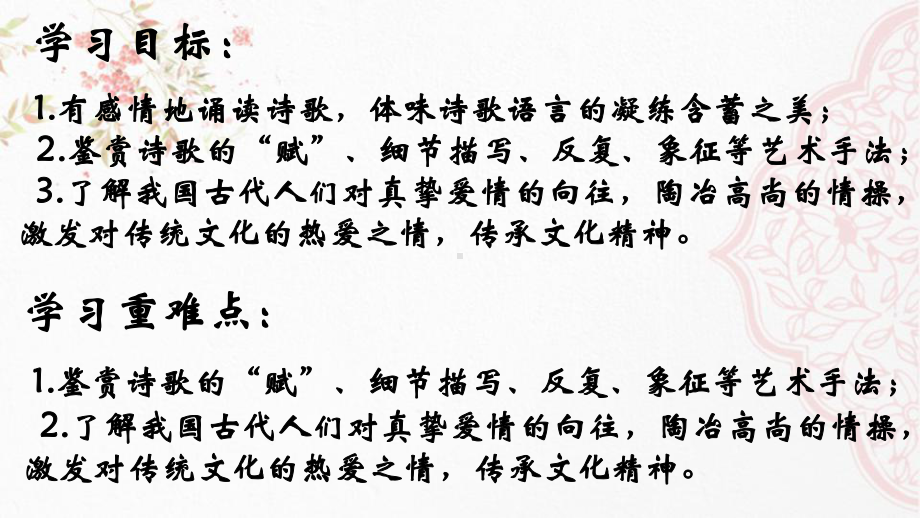 学习目标：
1.有感情地诵读诗歌，体味诗歌语言的凝练含蓄之美；
2.鉴赏诗歌的“赋”、细节描写、反复、象征等艺术手法；
3.了解我国古代人们对真挚爱情的向往，陶冶高尚的情操，
激发对传统文化的热爱之情，传承文化精神。
学习重难点：
1.鉴赏诗歌的“赋”、细节描写、反复、象征等艺术手法；
2.了解我国古代人们对真挚爱情的向往，陶冶高尚的情操，
激发对传统文化的热爱之情，传承文化精神。